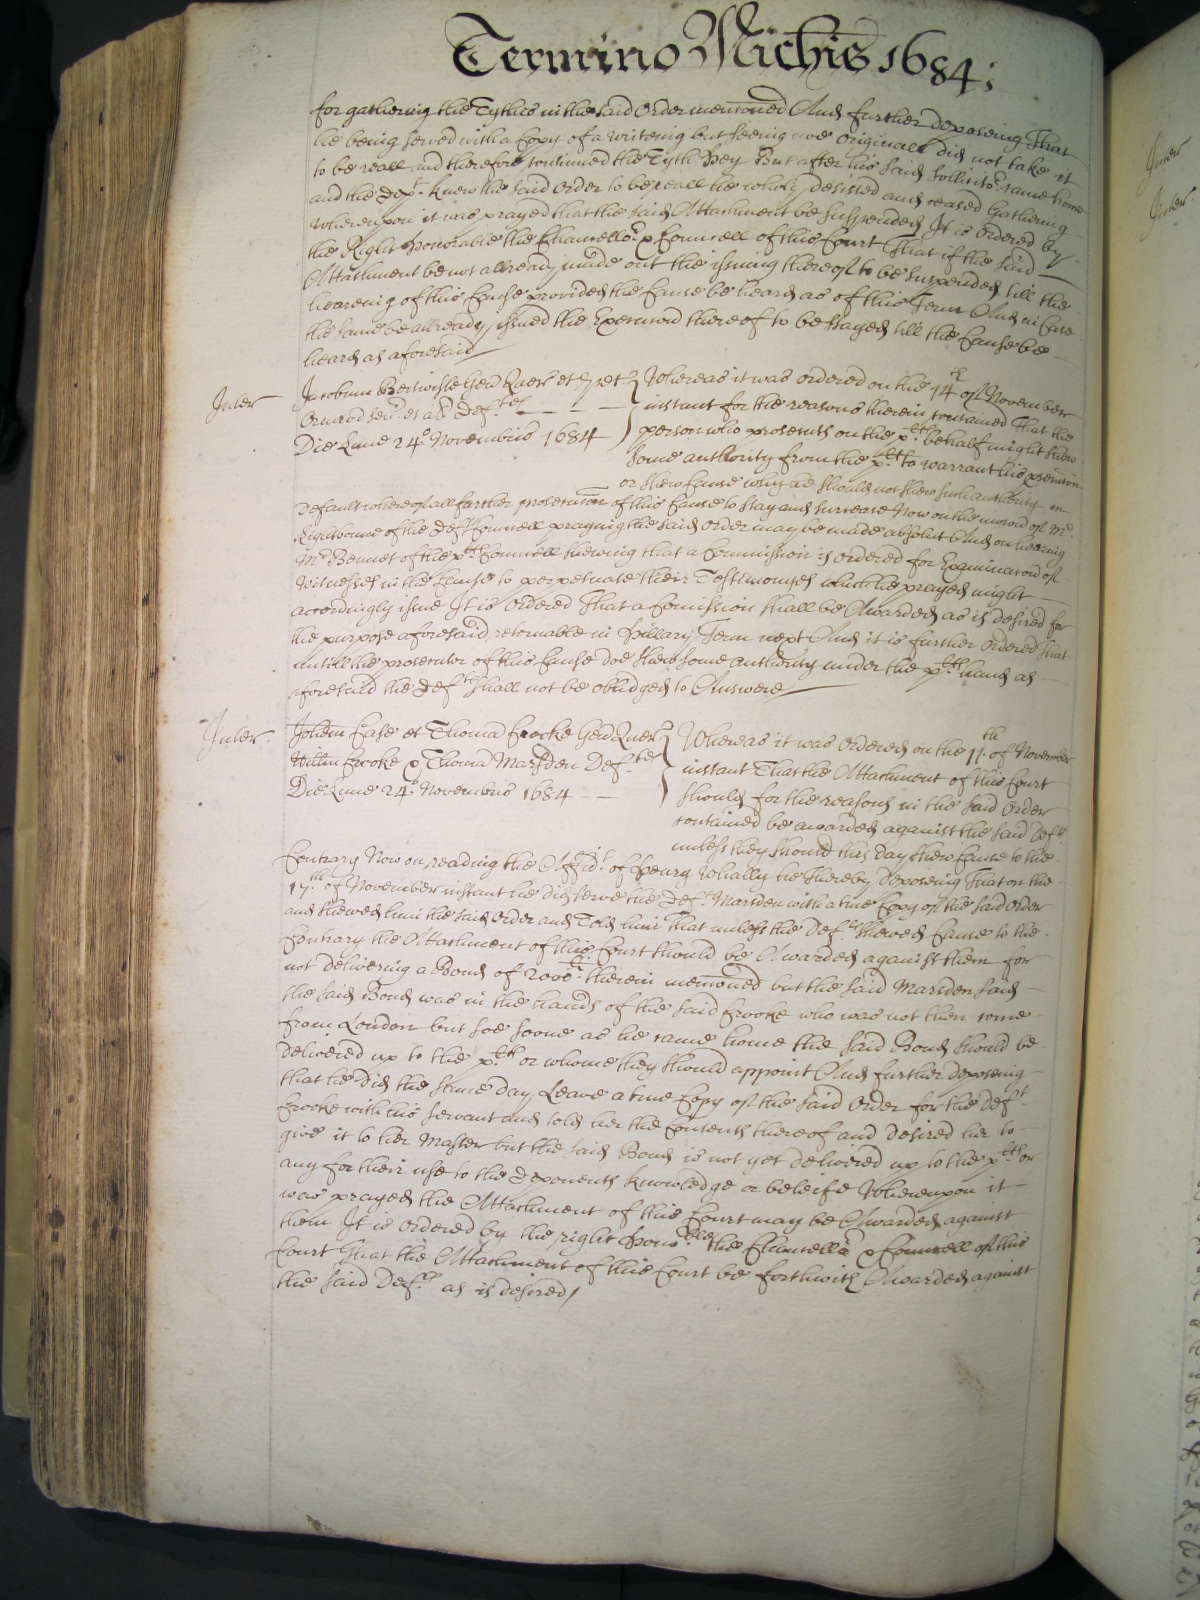 Termino Michis 1684;
for gathering the Tythes in the said Order menconed And further deposeing That
he being served with a Copy of a writeing but seeing noe originall did not take it
to be reall and therefore continued the Tyth Hey But after his said Sollicitor came home
and the Dept. knew the said Order to be reall he wholy desisted and ceased Gathering
Whereupon it was prayed that the said Attachment be suspended It is Ordered by
the Right Honorable the Chancellor & Councell of this Court That if the said
Attachment be not allready made out the issuing thereof to be suspended till the
heareing of this Cause provided the Cause be heard as of this Terme And in Case
the same be allready issued the Execucon thereof to be stayed till the Cause be
heard as aforesaid
Inter
Jacobum Bertwisle Gen Quer et
Ormerod senr. et als Deftes
Die Lune 24o Novembris 1684
Whereas it was ordered on the 14th of November
instant for the reasons therein contained That the
person who prosecuts on the plts behalf might shew
some authority from the plt to warrant his psecucon
or shew Cause why he should not shew such authority in
Default whereof all further prosecucon of this Cause to stay and surcease Now on the mocon of Mr
Lightbonne of the Defts Councell prayeing the said Order may be made absolut And on hearing
Mr Bennet of the plts Councell shewing that a Commission is ordered for Examinacon of
Witnesses in the Cause to perpetuate their Testimonyes which he prayed might
accordingly issue It is Ordered That a Comission shall be Awarded as is desired for
the purpose aforesaid retornable in Hillary Term next And it is further Ordered that
untill the prosecutor of this Cause doe shew some authority under the plts hand as
aforesaid the Deft shall not be obliedged to Answere
Inter
Johem Case et Thoma Crooke Gen Quer
Willm Crooke & Thoma Marsden Deftes
Die Lune 24o Novembris 1684
Whereas it was Ordered on the 11th of November
instant That the Attachment of this Court
should for the reasons in the said Order
contained be awarded against the said Defts
unless they should this day shew Cause to the
Contrary Now on reading the Affidt of Henry Whally he thereby deposeing That on the
17th of November instant he did serve the Deft Marsden with a true Copy of the said Order
and shewed him the said Order and Told him That unless the Defts shewed Cause to the
Contrary the Attachment of this Court should be Awarded against them for
not delivering a Bond of 2000l therein menconed but the said Marsden said
the said Bond was in the hands of the said Crooke who was not then come
from London but soe soone as he came home the said Bond should be
delivered up to the plts or whome they should appoint And further deposeing
that he did the same day Leave a true Copy of the said Order for the Deft
Crooke with his servant and told her the Contents thereof and desired her to
give it to her Master but the said Bond is not yet delivered up to the plts or
any for their use to the Deponents knowledge or beleife Whereupon it
was prayed the Attachment of this Court may be Awarded against
them It is Ordered by the right Honoble the Chancellor & Councell of this
Court That the Attachment of this Court be forthwith Awarded against
the said Defts as is desired
Inter
Inter